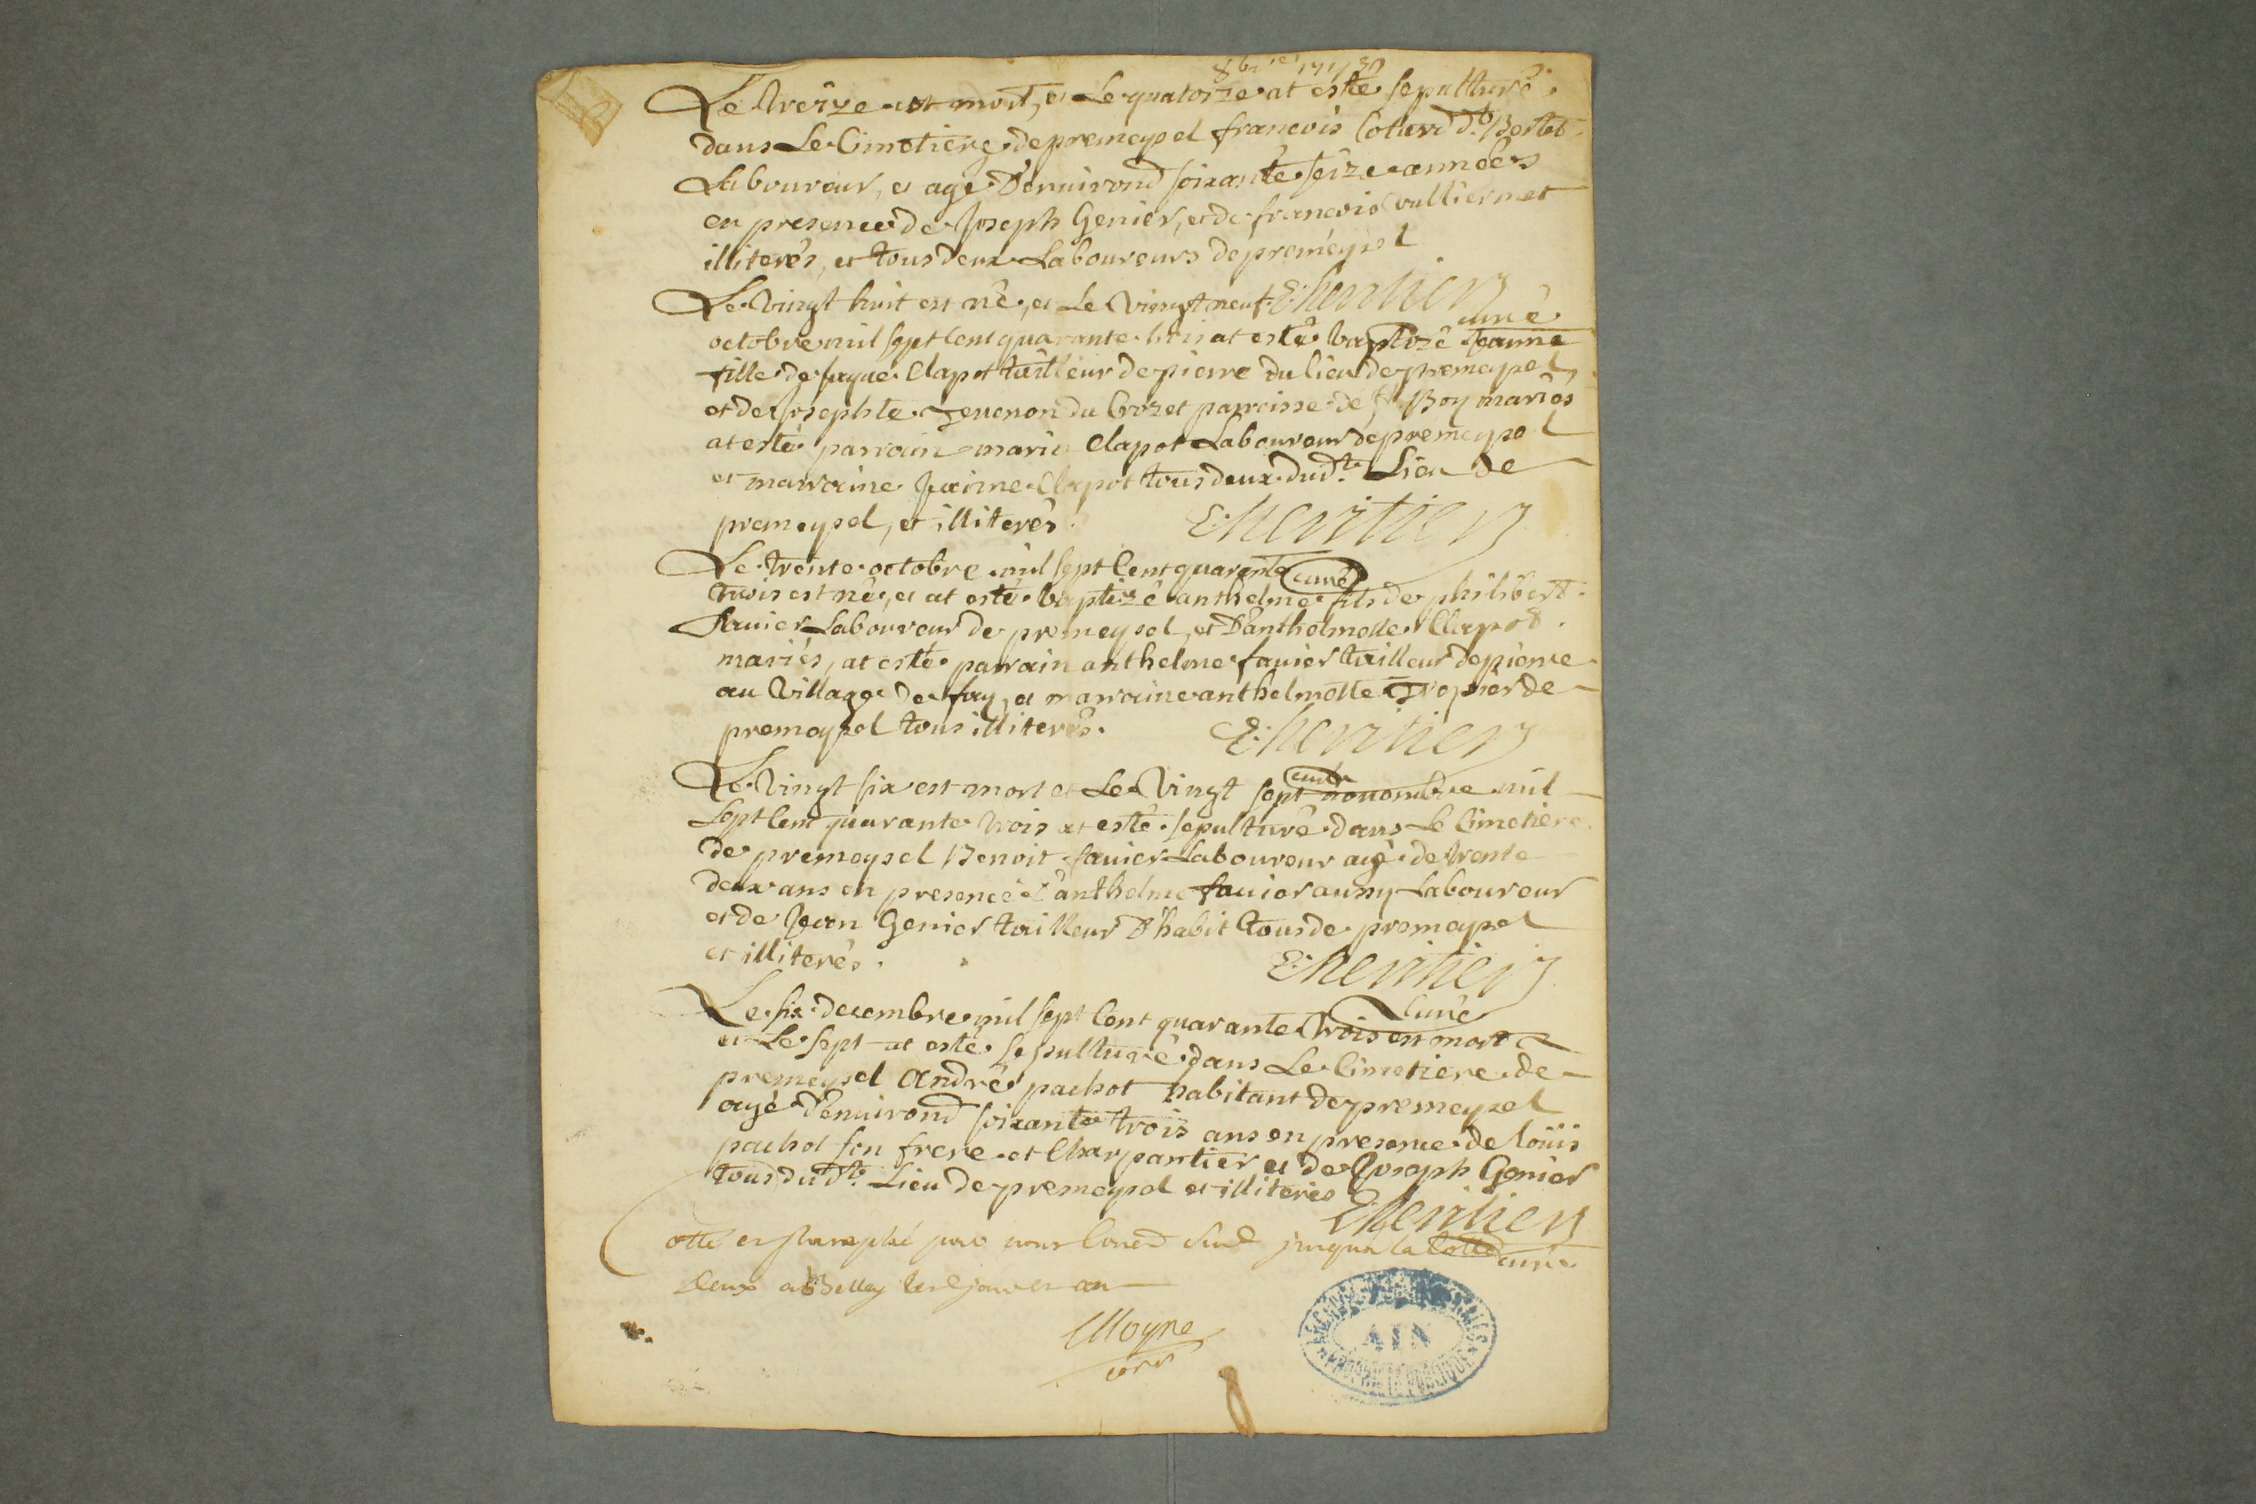 8bre 1743
Le treize est mort, et Le quatorze at esté sepulturé
dans Le Cimetiere de premeysel françois Cotard dt. Bertet
Laboureur, et agé D'enuirond soixante seize années
en presence de Joseph Genier, et de françois vulliermet
illiterés, et tous deux Laboureurs de premeysel
E: heritier
curé
Le vingt huit est né, et Le vingt neuf
octobre mil sept Cent quarante trois at esté baptisé Jeanne
fille de jaque Clapot tailleur de pierre du lieu de premeysel
et de Josephte Jeuenon du Crozet parroisse de St Boy mariés
at esté parrain marin Clapot Laboureur de premeysel
et marraine Jeanne Clapot tous deux dudt. Lieu de
premeysel, et illiterés.
E: heritier
curé
Le trente octobre mil sept Cent quarante
trois est né, et at esté baptizé anthelme fils de philibert
fauier Laboureur de premeysel, et D'anthelmette Clapot
mariés, at esté parrain anthelme fauier tailleur de pierre
au village de fay, et marraine anthelmette Tropier de
premeysel tous illiterés.
E: heritier
curé
Le vingt six est mort et Le vingt sept nouembre mil
sept Cent quarante trois at esté sepulturé dans Le Cimetiere
de premeysel Benoit fauier Laboureur agé de trente
deux ans en presence d'anthelme fauier aussy Laboureur
et de Jean Genier tailleur D'habit tous de premeysel
et illiterés.
E: heritier
Curé
Le six decembre mil sept Cent quarante trois est mort
et Le sept at esté sepulturé dans Le Cimetiere de
premeysel andré pachot habitant de premeyzel
agé d'enuirond soixante trois ans en presence de loüis
pachot son frere et Charpantier et de Joseph Genier
tous dudt. Lieu de premeysel et illiterés
E heritier
curé
Cotté et paraphé par nous jusqua la Cotte
deux a Belley
Moyne
AIN